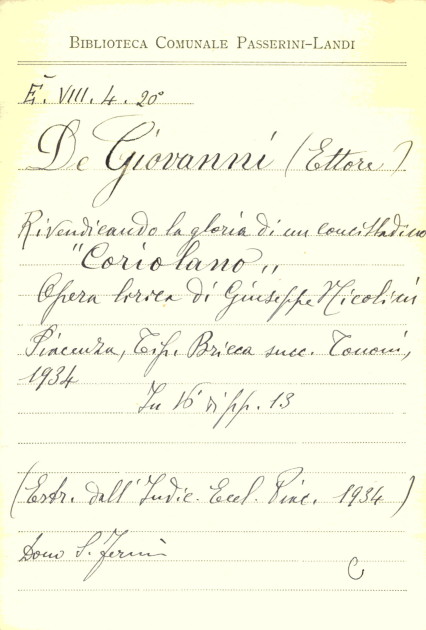 BIBLIOTECA COMUNALE PASSERINI-LANDI
E. VIII. 4. 20°
De Giovanni (Ettore)
Rivendicando la gloria di un concittadino
"Coriolano"
Opera lirica di Giuseppe Nicolini
Piacenza, Tip. Bricca succ. Tononi,
1934
In 16° di pp. 13
(Estr. dall'Indic. Eccl. Piac. 1934)
Dono S. Fermi
C